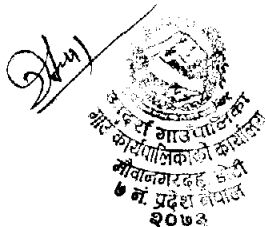 आदर्श गाउँपालिका
गाउँ कार्यपालिकाको कार्यालय
मौवानगरदह डोटी
७ नं. प्रदेश नेपाल
२०७३